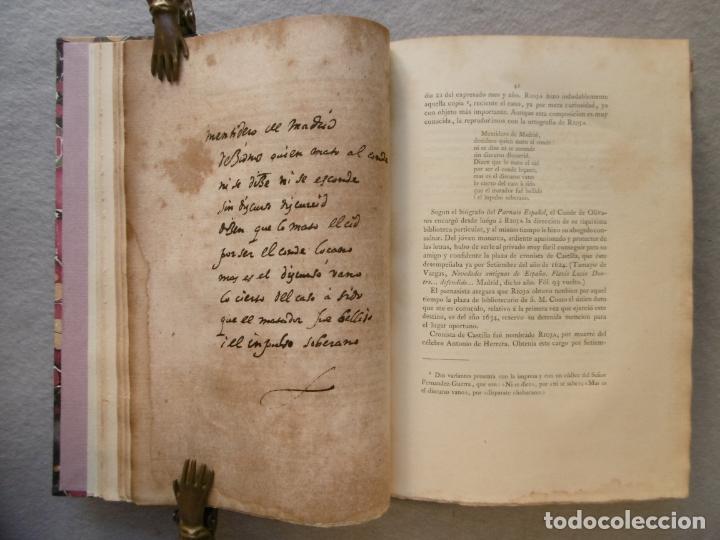 mentidero de madrid
deZidno quien mato al conde
ni se diZe ni se esconde
sin discurso discurrid
diZen que lo mato el cid
por ser el conde loçano
mas es el discurso vano
lo cierto del caso a sido
que el matador fue bellido
i el inpulso soberano
42
dio 21 del expresado mes y año. RIOJA hizo indudablemente
aquella copia ¹, reciente el caso, ya por mera curiosidad, ya
con objeto más importante. Aunque esta composicion es muy
conocida, la reproducimos con la ortografía de RIOJA.
Mentidero de Madrid,
decidnos quien mato el conde
ni se dize ni se esconde
sin discurso discurrid.
Dizen que le mato el cid
por ser el conde loçano,
mas es el discurso vano
lo cierto del caso a sido
que el matador fue bellido
i el inpulso soberano.
Segun el biógrafo del Parnaso Español, el Conde de Oliva-
res encargó desde luego á RIOJA la direccion de su riquísima
biblioteca particular, y al mismo tiempo le hizo su abogado con-
sultor. Del jóven monarca, ardiente apasionado y protector de las
letras, hubo de serle al privado muy fácil conseguir para su
amigo y confidente la plaza de cronista de Castilla, que éste
desempeñaba ya por Setiembre del año de 1624. (Tamayo de
Vargas, Novedades antiguas de España. Flavio Lucio Dex-
tro... defendido... Madrid, dicho año. Fól. 93 vuelto.)
El parnasista asegura que RIOJA obtuvo tambien por aquel
tiempo la plaza de bibliotecario de S. M. Como el único dato que
me es conocido, relativo á la primera vez que ejerció este
destino, es del año 1634, reservo su detenida mencion para
el lugar oportuno.
Cronista de Castilla fué nombrado RIOJA, por muerte del
célebre Antonio de Herrera. Obtenia este cargo por Setiem-
¹ Dos variantes presenta con la impresa y con un códice del Señor
Fernandez-Guerra, que son: «Ni se dice», por «ni se sabe»; «Mas es
el discurso vano», por «disparate chabacano».
todocoleccion.net